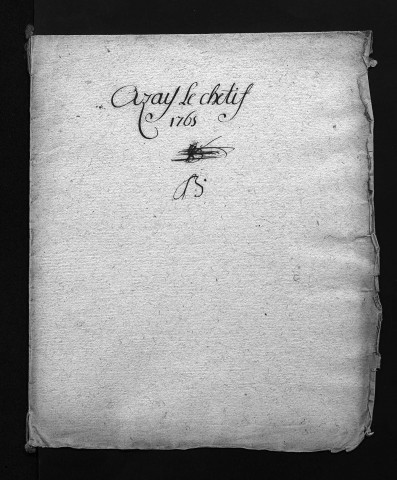 Azay le chetif
1765
B